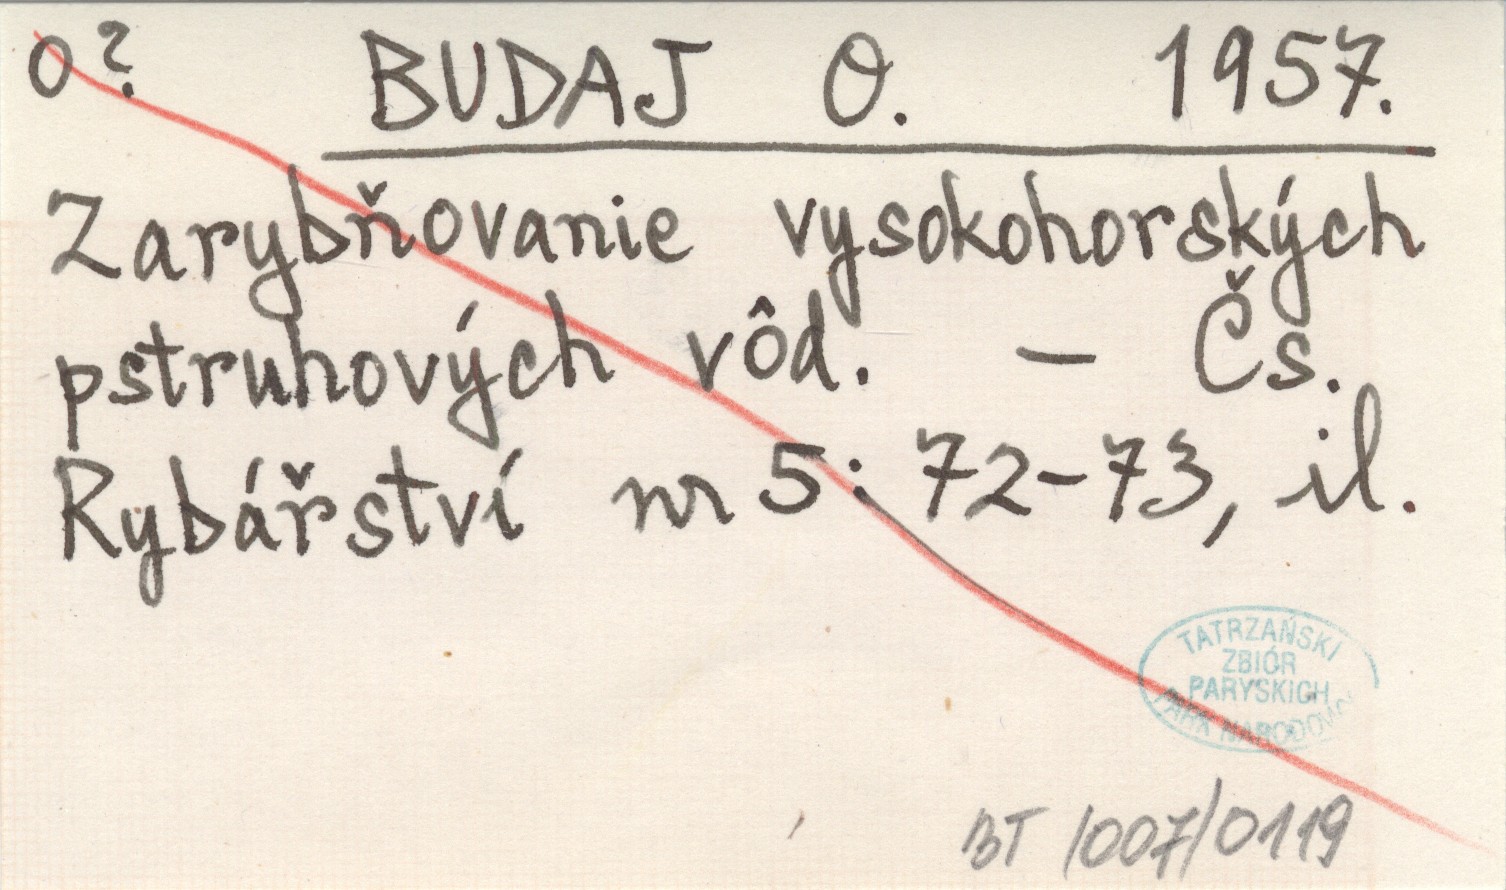 O? BUDAJ O. 1957.
Zarybňovanie vysokohorských
pstruhových vôd. – Čs.
Rybářství nr 5: 72-73, il.
TATRZAŃSKI
ZBIÓR
PARYSKICH
PARK NARODOWY
BT /007/0119